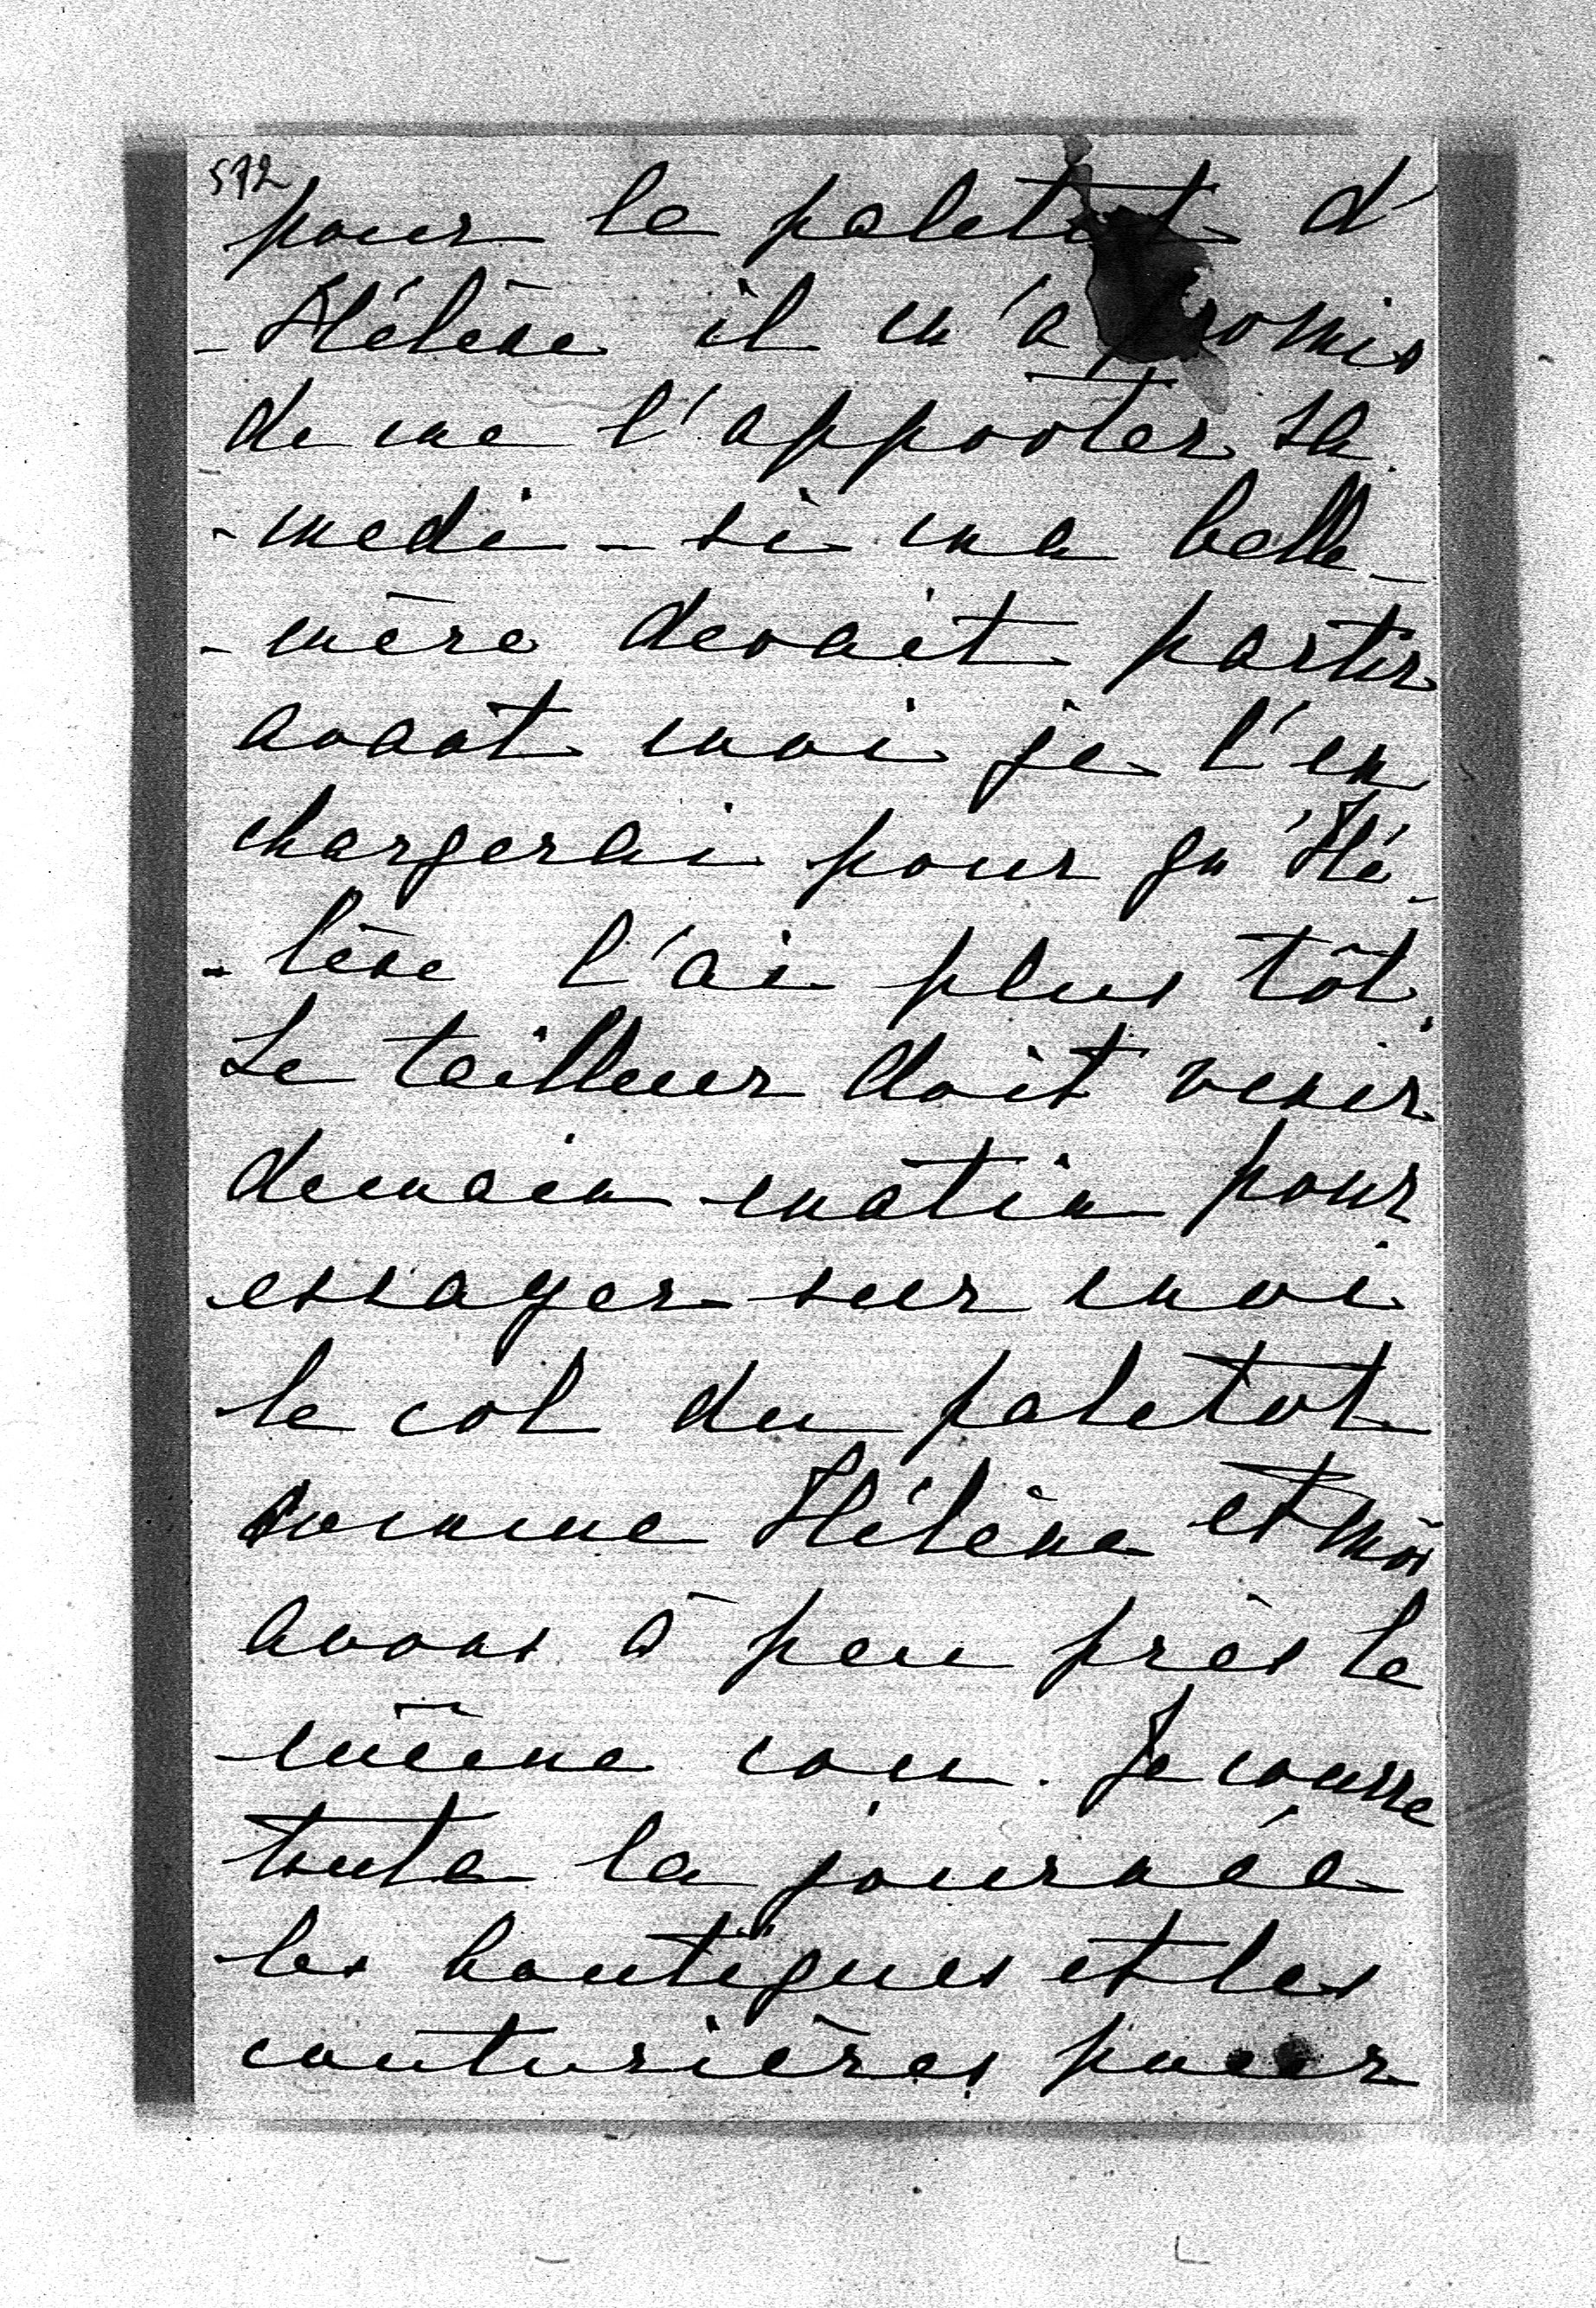 572
pour le paletot d'
-Hélène il m'a promis
de me l'apporter sa
-medi - si ma belle-
-mère devait partir
avant moi je l'en
chargerai pour qu'Hé-
-lène l'ai plus tôt.
Le tailleur doit venir
demain matin pour
essayer sur moi
le col du paletot
comme Hélène et moi
avons à peu près le
même cou. Je courre
toute la journée
les boutiques et les
couturières pour